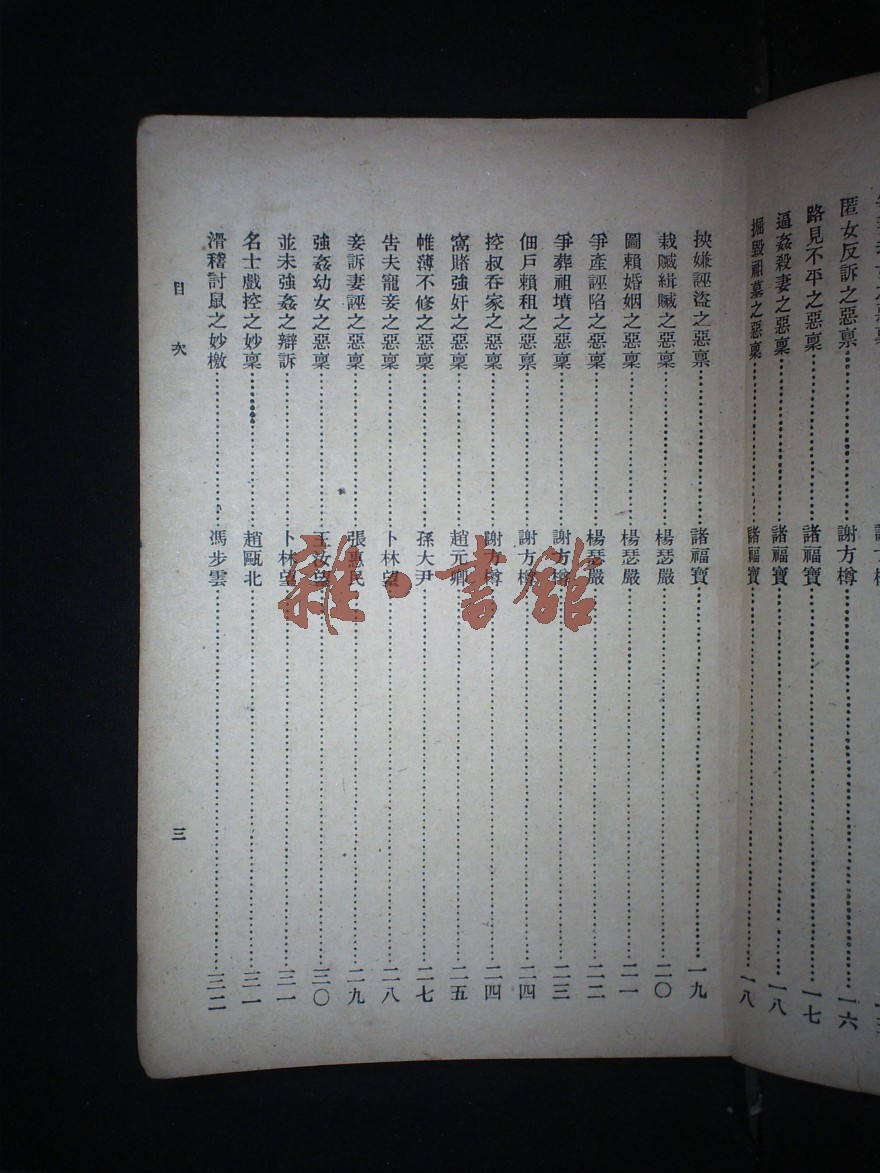 匿女反訴之惡稟 謝方樽 一六
路見不平之惡稟 諸福寶 一七
逼姦殺妻之惡稟 諸福寶 一八
掘毀祖墓之惡稟 諸福寶 一八
挾嫌誣盜之惡稟 諸福寶 一九
栽贓緝贓之惡稟 楊瑟嚴 二〇
圖賴婚姻之惡稟 楊瑟嚴 二一
爭產誣陷之惡稟 楊瑟嚴 二二
爭葬祖墳之惡稟 謝方樽 二三
佃戶賴租之惡稟 謝方樽 二四
控叔吞家之惡稟 謝方樽 二四
窩賭強奸之惡稟 趙元卿 二五
帷薄不修之惡稟 孫大尹 二七
告夫寵妾之惡稟 卜林望 二八
妾訴妻誣之惡稟 張惠民 二九
強姦幼女之惡稟 王汝望 三〇
並未強姦之辯訴 卜林望 三一
名士戲控之妙稟 趙甌北 三一
滑稽討鼠之妙檄 馮步雲 三二
目次 三
雜·書館